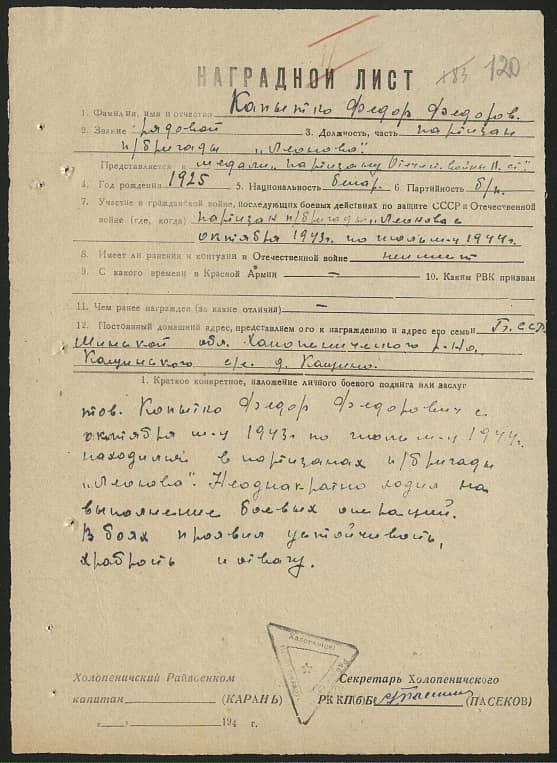 120
НАГРАДНОЙ ЛИСТ
1. Фамилия, имя и отчество Капытко Федор Федоров.
2. Звание рядовой 3. Должность, часть партизан
п/бригады „Леонова".
Представляется к медали „партизану Отечеств. войны II ст."
4. Год рождения 1925 5. Национальность белар. 6. Партийность б/п.
7. Участие в гражданской войне, последующих боевых действиях по защите СССР и Отечественной
войне (где, когда) партизан п/бригады „Леонова с
октября 1943г. по июль м-ц 1944г.
8. Имеет ли ранения и контузии в Отечественной войне не имеет
9. С какого времени в Красной Армии — 10. Каким РВК призван
11. Чем ранее награжден (за какие отличия) —
12. Постоянный домашний адрес, представляем ого к награждению и адрес его семьи БССР
Минской обл. Холопеничского р-на
Кащинского с/с. д. Кащино.
1. Краткое конкретное, изложение личного боевого подвига или заслуг
тов. Капытко Федор Федорович с
октября м-ц 1943г по июль м-ц 1944г.
находился в партизанах п/бригады
„Леонова". Неоднакратно ходил на
выполнение боевых операций.
В боях проявил устойчивость,
храбрость и отвагу.
Холопеничский Райвоенком
капитан (КАРАНЬ)
„ „ 194 г.
Секретарь Холопеничского
РК КП(б)Б (ПАСЕКОВ)